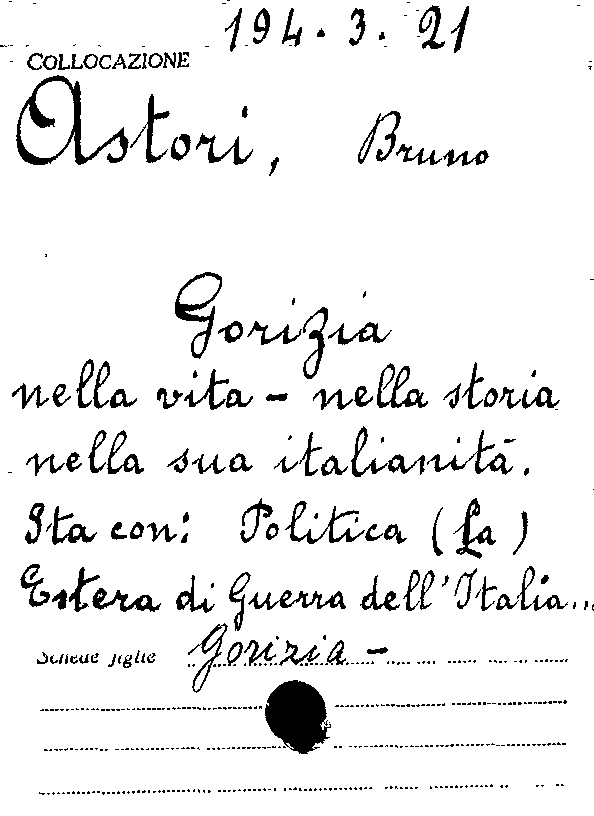 194.3.21
COLLOCAZIONE
Astori, Bruno
Gorizia
nella vita - nella storia
nella sua italianità.
Sta con: Politica (La)
Estera di Guerra dell'Italia...
Schede figlie Gorizia -